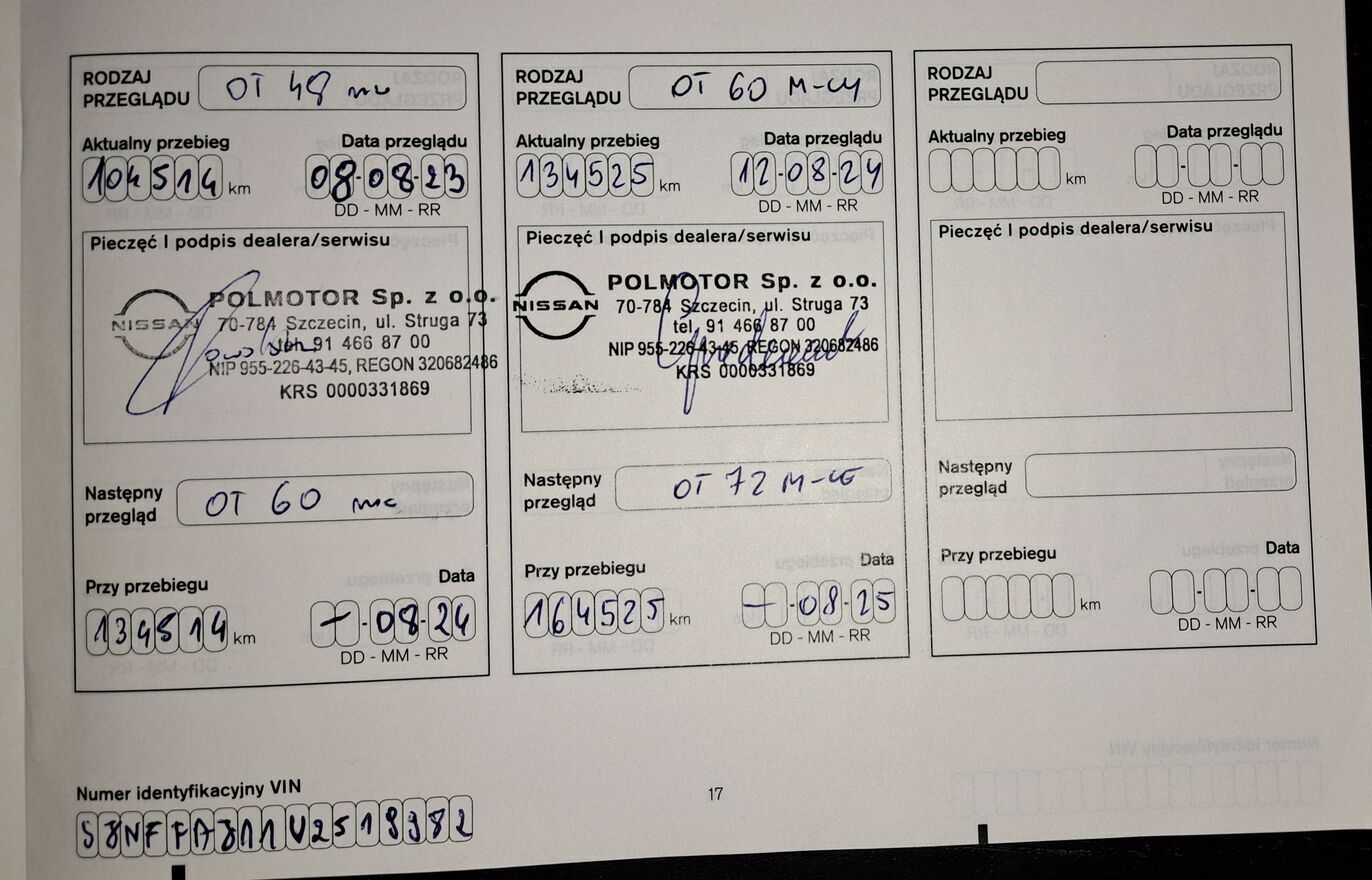 RODZAJ PRZEGLĄDU OT 48 mc
Aktualny przebieg Data przeglądu
104514 km 08-08-23
DD - MM - RR
Pieczęć I podpis dealera/serwisu
NISSAN
POLMOTOR Sp. z o.o.
70-784 Szczecin, ul. Struga 73
tel. 91 466 87 00
NIP 955-226-43-45, REGON 320682486
KRS 0000331869
Następny przegląd OT 60 mc
Przy przebiegu Data
134514 km –-08-24
DD - MM - RR
RODZAJ PRZEGLĄDU OT 60 M-CY
Aktualny przebieg Data przeglądu
134525 km 12-08-24
DD - MM - RR
Pieczęć I podpis dealera/serwisu
NISSAN
POLMOTOR Sp. z o.o.
70-784 Szczecin, ul. Struga 73
tel. 91 466 87 00
NIP 955-226-43-45, REGON 320682486
KRS 0000331869
Następny przegląd OT 72 M-CE
Przy przebiegu Data
164525 km –-08-25
DD - MM - RR
RODZAJ PRZEGLĄDU
Aktualny przebieg Data przeglądu
km - -
DD - MM - RR
Pieczęć I podpis dealera/serwisu
Następny przegląd
Przy przebiegu Data
km - -
DD - MM - RR
Numer identyfikacyjny VIN
SJNFFAJ11U2519982
17